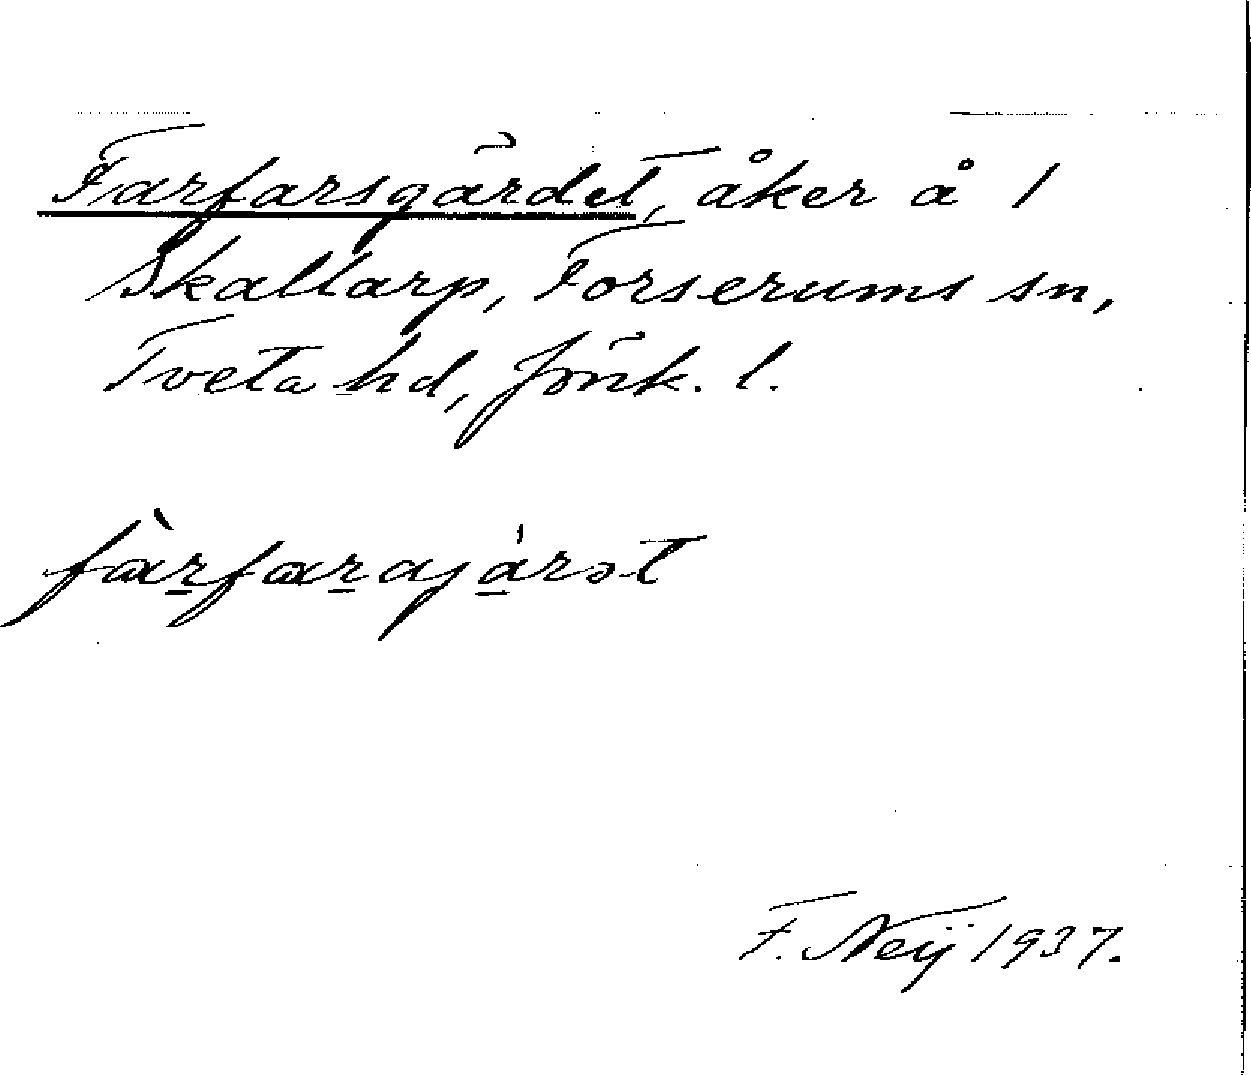 Farfarsgärdet, åker å 1
Skattarp, Forserums sn,
Tveta hd, Jönk. l.
fàrfarajárət
F. Neij 1937.